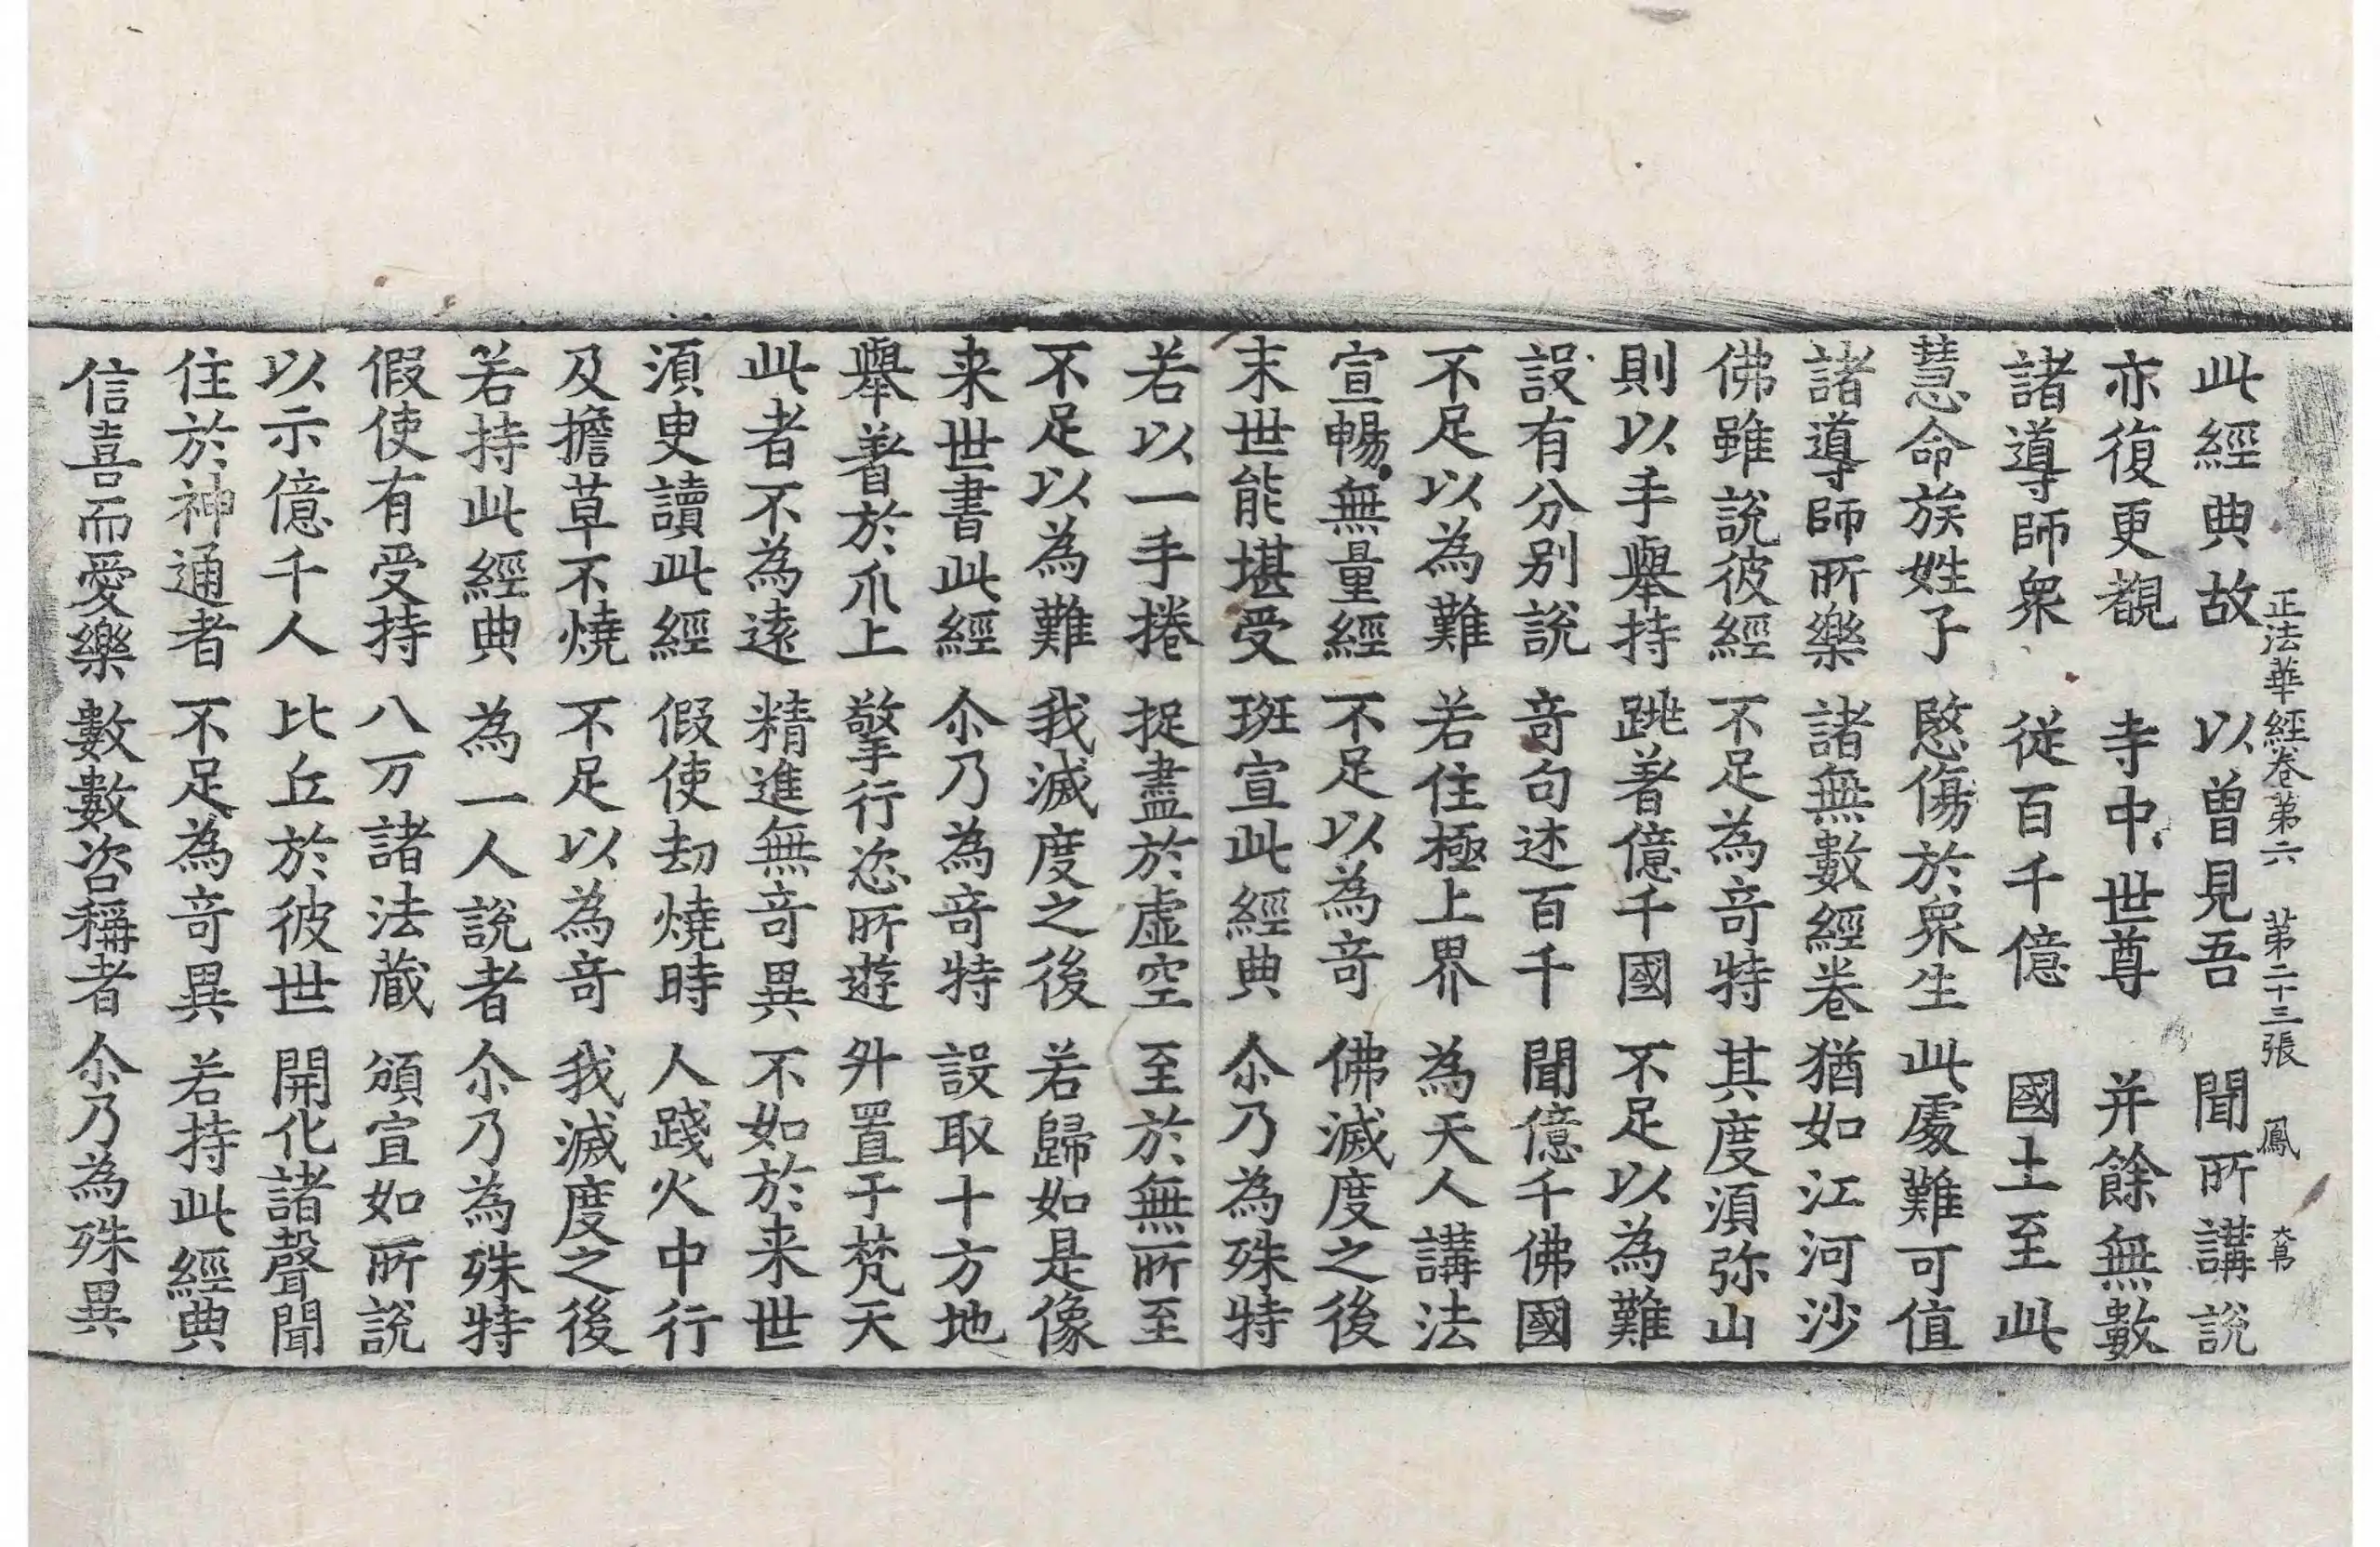 正法華經卷第六 第二十三張 鳳
此經典故 以曾見吾 聞所講說
亦復更覩 寺中世尊 并餘無數
諸導師衆 從百千億 國土至此
慧命族姓子 愍傷於衆生 此處難可值
諸導師所樂 諸無數經卷 猶如江河沙
佛雖說彼經 不足為竒特 其度須弥山
則以手舉持 跳著億千國 不足以為難
設有分別說 竒句述百千 聞億千佛國
不足以為難 若住極上界 為天人講法
宣暢無量經 不足以為竒 佛滅度之後
末世能堪受 班宣此經典 尒乃為殊特
若以一手捲 捉盡於虛空 至於無所至
不足以為難 我滅度之後 若歸如是像
来世書此經 尒乃為竒特 設取十方地
舉著於爪上 擎行恣所遊 舛置于梵天
此者不為遠 精進無竒異 不如於来世
須臾讀此經 假使劫燒時 人踐火中行
及擔草不燒 不足以為竒 我滅度之後
若持此經典 為一人說者 尒乃為殊特
假使有受持 八万諸法藏 頒宣如所說
以示億千人 比丘於彼世 開化諸聲聞
住於神通者 不足為竒異 若持此經典
信喜而愛樂 數數咨稱者 尒乃為殊異